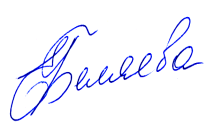 ЕБеляева